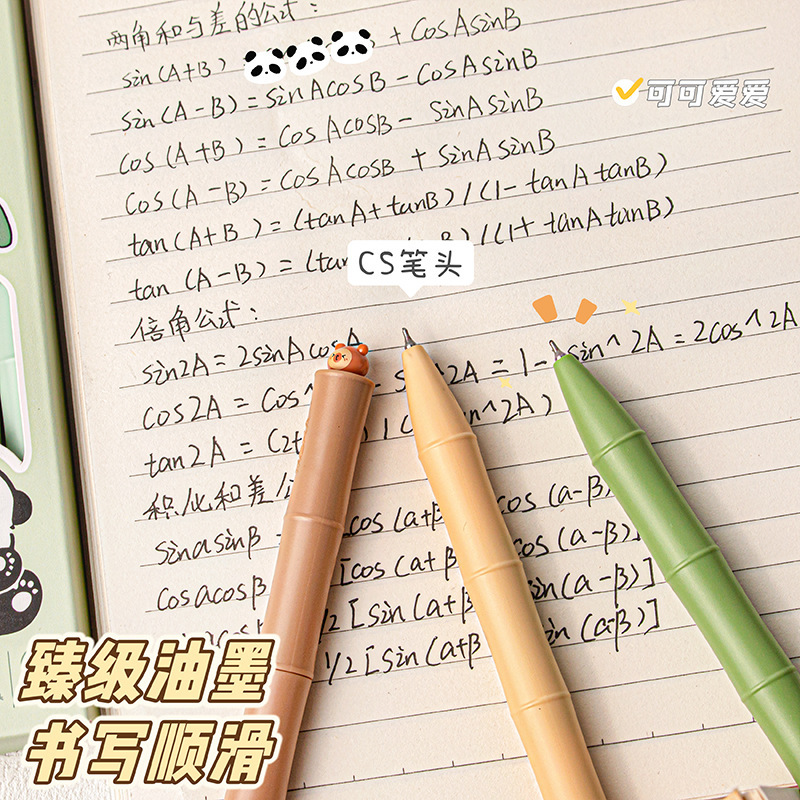 两角和与差的公式:
sin(A+B) + cosAsinB
sin(A-B)=sinAcosB-cosAsinB
cos(A+B)=cosAcosB-sinAsinB
cos(A-B)=cosAcosB+sinAsinB
tan(A+B)=(tanA+tanB)/(1-tanAtanB)
tan(A-B)=(tan B)/(1+tanAtanB)
倍角公式:
sin2A=2sinAcosA
cos2A=cos^ - s 2A=1- sin^2A=2cos^2A
tan2A=(2t n^2A)
积化和差公
sinasinβ cos(a+β cos(a-β)
cosacosβ [cos(a+β cos(a-β)]
/2[sin(a+β sin(a-β)]
1/2[sin(a+β in(a-β)]
可可爱爱
CS笔头
臻级油墨
书写顺滑